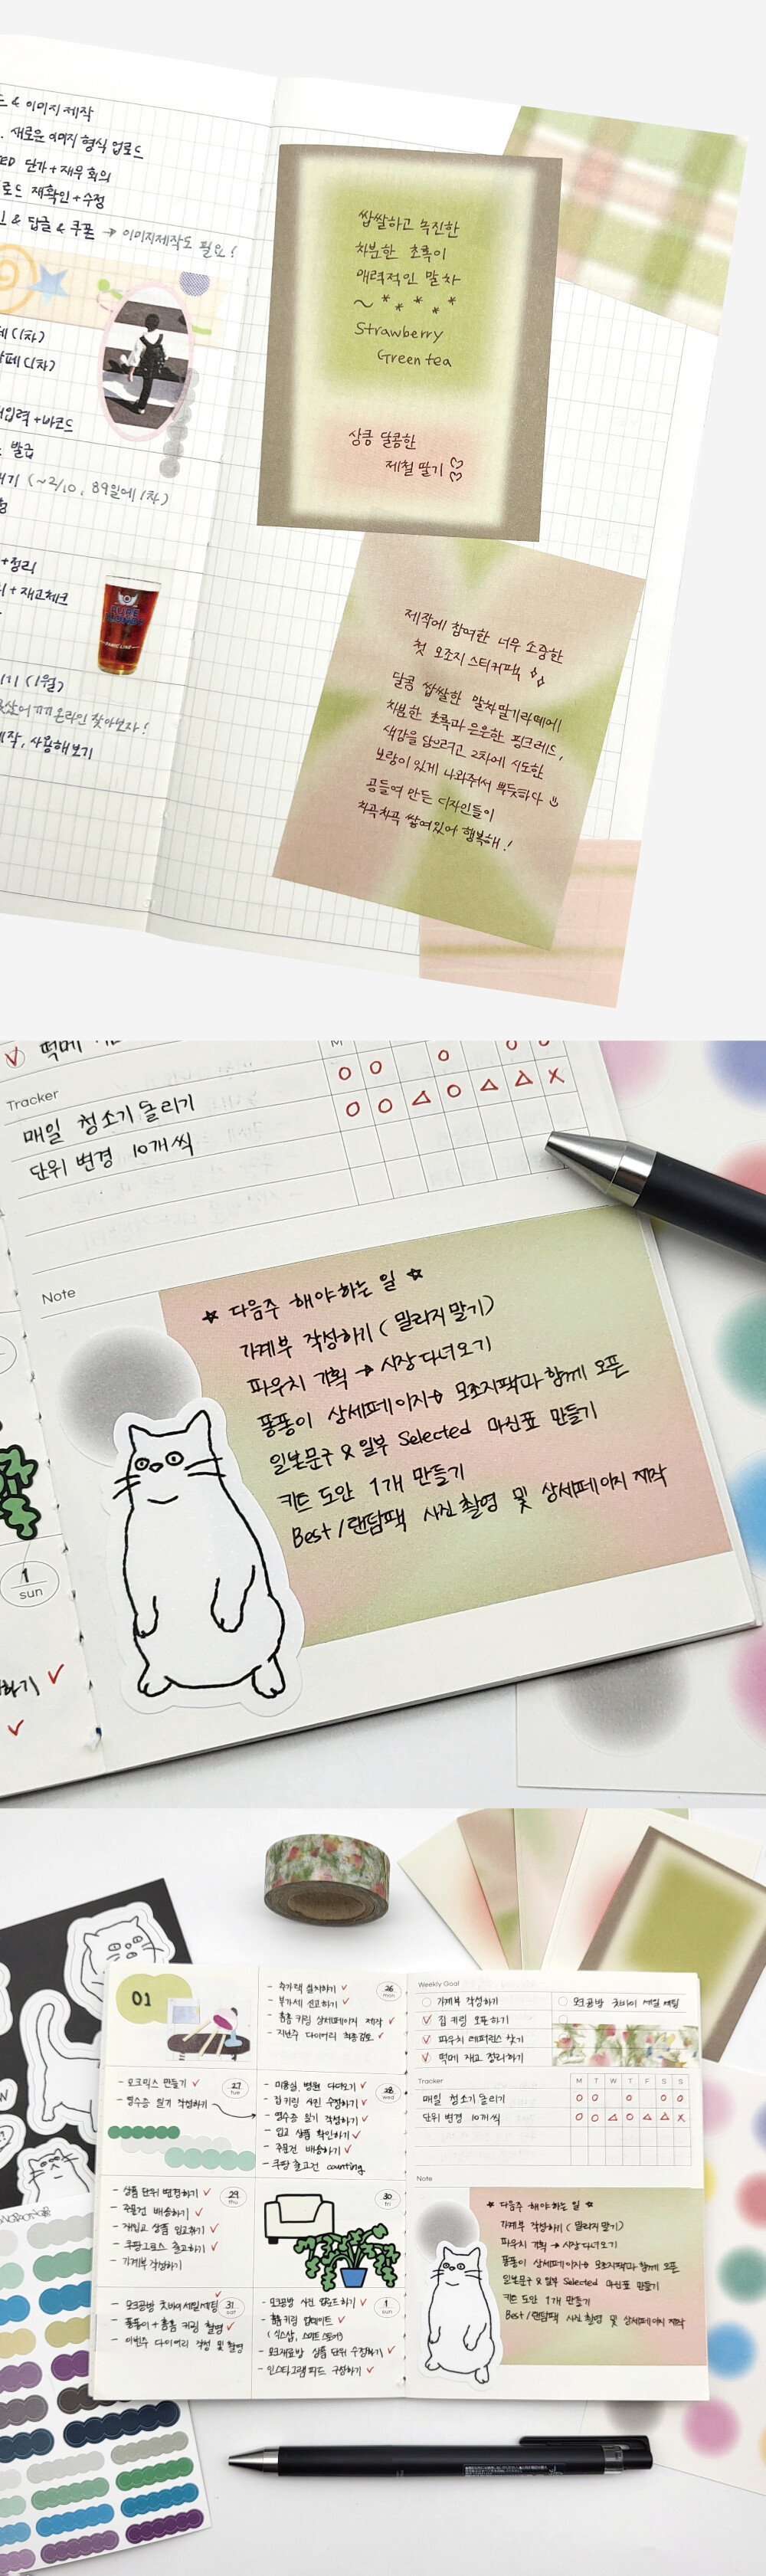 & 이미지 제작
새로운 이미지 형식 업로드
단가 + 재무 회의
로드 재확인 + 수정
& 답글 & 쿠폰 → 이미지제작도 필요!
(1차)
페 (1차)
입력 + 바코드
발급
(~2/10, 89일에 1차)
+ 정리
+ 재고체크
(1월)
온라인 찾아보자!
제작, 사용해보기
쌉쌀하고 녹진한
차분한 초록이
매력적인 말차
~ * * * * *
Strawberry
Green tea
상큼 달콤한
제철 딸기 ♡♡
제작에 참여한 너무 소중한
첫 모조지 스티커팩
달콤 쌉쌀한 말차딸기라떼에서
차분한 초록과 은은한 핑크레드,
색감을 담으려고 2차에 시도한
보람이 있게 나와줘서 뿌듯하다
공들여 만든 디자인들이
차곡차곡 쌓여있어 행복해!
떡메
M
Tracker
매일 청소기 돌리기
단위 변경 10개씩
Note
☆ 다음주 해야하는 일 ☆
가계부 작성하기 (밀리지말기)
파우치 기획 → 시장 다녀오기
퐁퐁이 상세페이지→ 모조지팩과 함께 오픈
일본문구 & 일부 Selected 마진표 만들기
키트 도안 1개 만들기
Best / 랜덤팩 사진 촬영 및 상세페이지 제작
1
sun
01
26
mon
- 부가세 신고하기 ✓
- 홈홈 키링 상세페이지 제작 ✓
- 지난주 다이어리 최종검토 ✓
27
tue
- 모크믹스 만들기 ✓
28
wed
- 미용실, 병원 다녀오기 ✓
- 집키링 사진 수정하기 ✓
- 영수증 일기 작성하기 ✓
- 입고 상품 확인하기 ✓
- 주문건 배송하기 ✓
- 쿠팡 출고건 counting
29
thu
- 상품 단위 변경하기 ✓
- 주문건 배송하기 ✓
- 재입고 상품 입고하기 ✓
- 쿠팡그로스 출고하기 ✓
- 가계부 작성하기
30
fri
31
sat
- 퐁퐁이 + 홈홈 키링 촬영 ✓
- 이번주 다이어리 작성 및 촬영
1
sun
- 인스타그램 피드 구성하기 ✓
Weekly Goal
가계부 작성하기
집 키링 오픈하기
파우치 레퍼런스 찾기
떡메 재고 정리하기
Tracker
M T W T F S S
매일 청소기 돌리기
단위 변경 10개씩
Note
☆ 다음주 해야하는 일 ☆
가계부 작성하기 (밀리지말기)
파우치 기획 → 시장 다녀오기
퐁퐁이 상세페이지→ 모조지팩과 함께 오픈
일본문구 & 일부 Selected 마진표 만들기
키트 도안 1개 만들기
Best / 랜덤팩 사진 촬영 및 상세페이지 제작